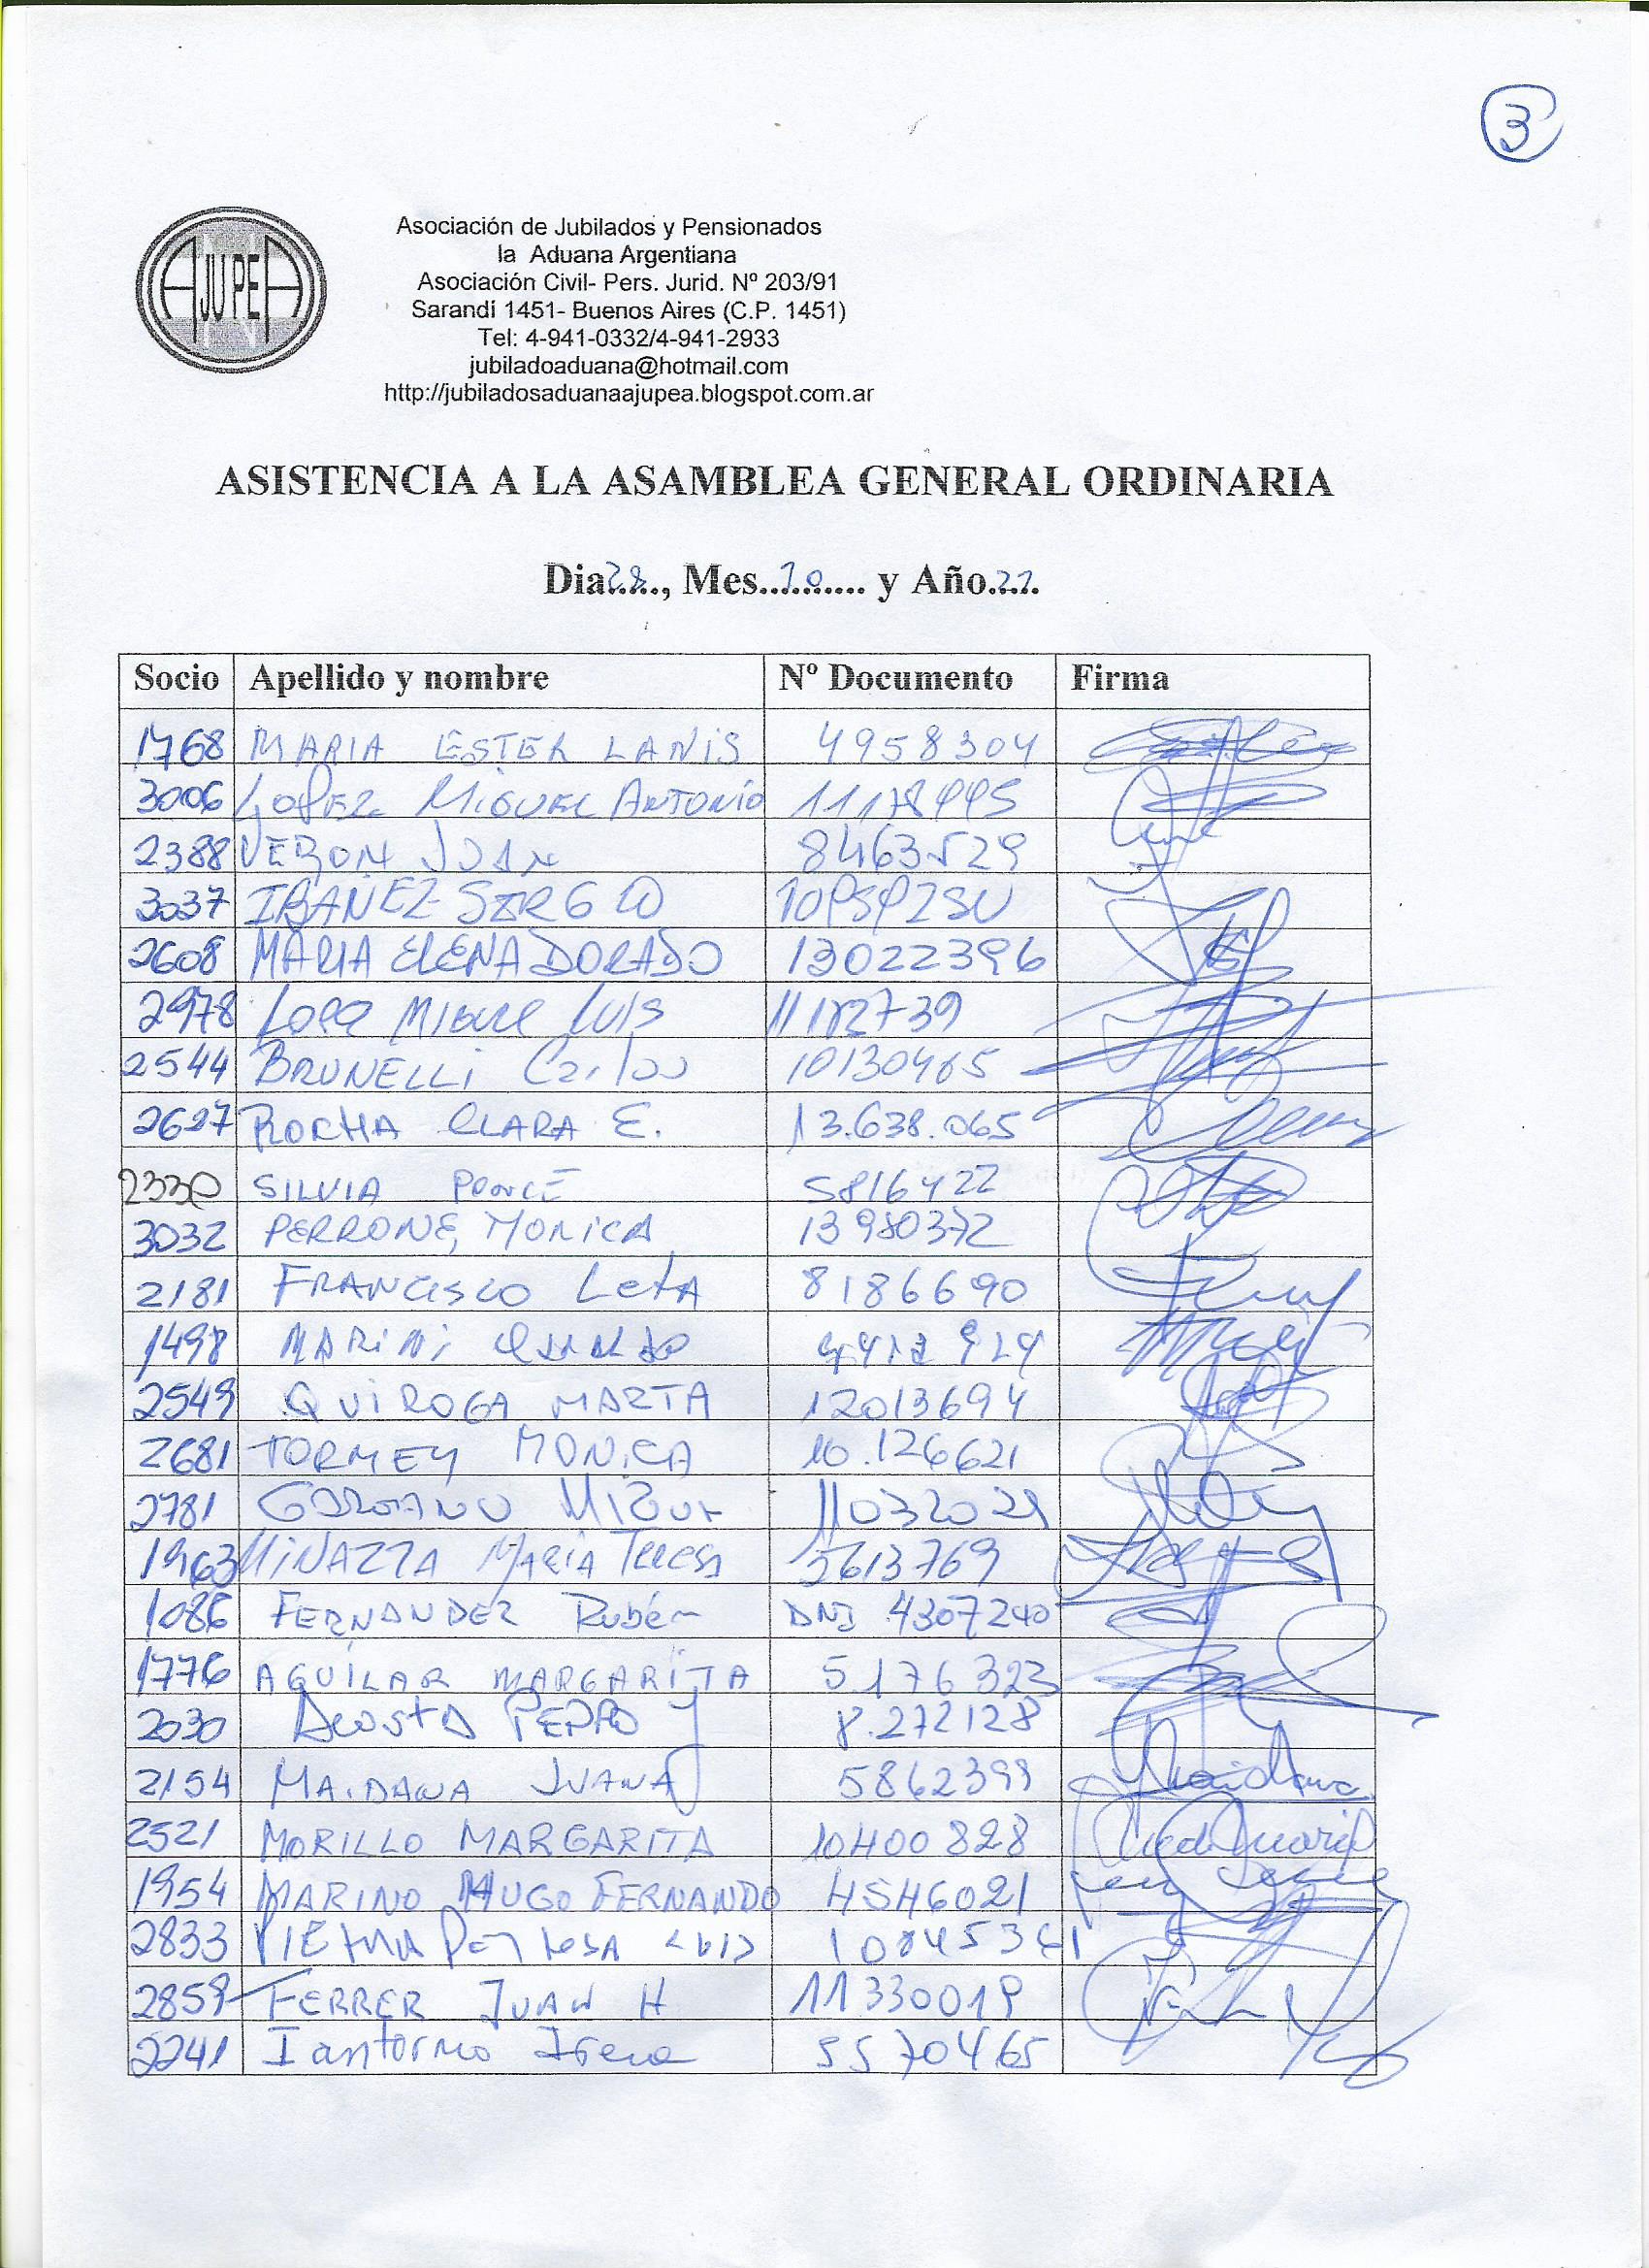 3
AJUPEA
Asociación de Jubilados y Pensionados
la Aduana Argentiana
Asociación Civil- Pers. Jurid. Nº 203/91
Sarandí 1451- Buenos Aires (C.P. 1451)
Tel: 4-941-0332/4-941-2933
jubiladoaduana@hotmail.com
http://jubiladosaduanaajupea.blogspot.com.ar
ASISTENCIA A LA ASAMBLEA GENERAL ORDINARIA
Dia 28, Mes 10 y Año 22.
Socio Apellido y nombre Nº Documento Firma
1768 MARIA ESTER LANIS 4958304
3006 LOPEZ MIGUEL ANTONIO
2388 VERON JUAN 8463529
3037 IBAÑEZ SERGIO
2608 MARIA ELENA DORADO 13022396
2978 MIGUEL LUIS 11182739
2544 BRUNELLI Carlos 10130465
2627 ROCHA CLARA E. 13.638.065
2330 SILVIA PONCE 5816422
3032 PERRONE, MONICA 13980372
2181 FRANCISCO LetA 8186690
1498 MARINI
2549 QUIROGA MARTA 12013694
2681 TORMEY MONICA 10.126621
2781 11032029
1963 MINAZZA MARIA TERESA 5613769
1086 FERNANDEZ Rubén DNI 4307240
1776 AGUILAR MARGARITA 5.176323
2030 ACOSTA PEDRO J 8.272128
2154 MAIDANA JUANA 5862399
2521 MORILLO MARGARITA 10400828
1954 MARINO HUGO FERNANDO 4546021
2833
2859 FERRER JUAN H 11330019
2241 Iantorno Irene 5570465